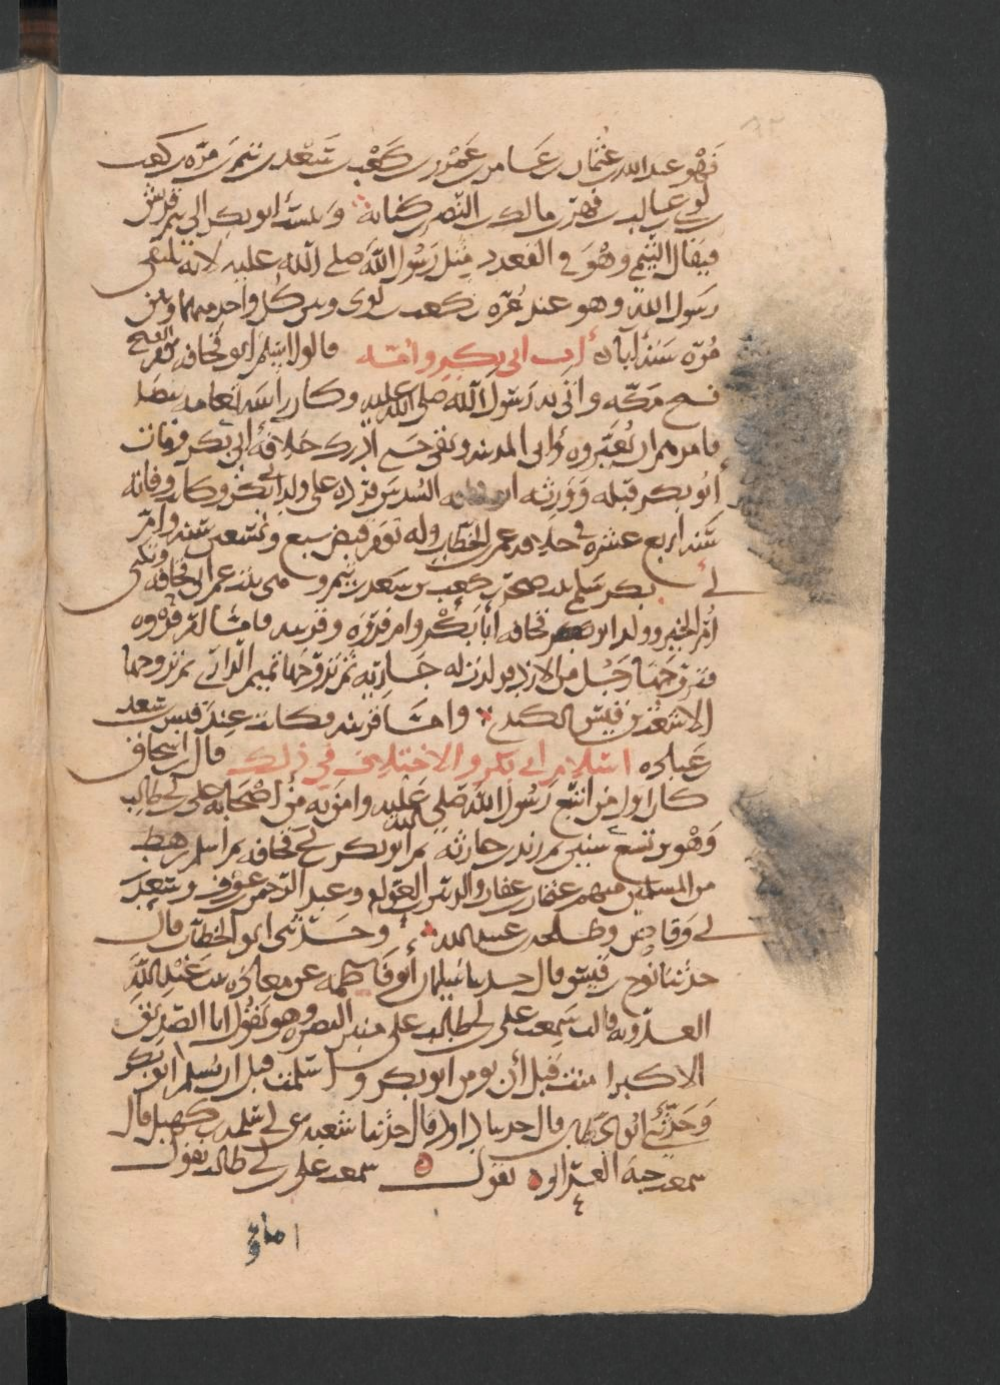 فهو عبد الله بن عثمان بن عامر بن عمرو بن كعب بن سعد بن تيم بن مرة بن كعب
بن لوي بن غالب بن فهر بن مالك بن النضر بن كنانة وينسب ابو بكر الى تيم قريش
فيقال التيمي وهو في القعدد مثل رسول الله صلى الله عليه لانه يلتقي
رسول الله وهو عند مرة بن كعب بن لوي وبين كل واحد منهما وبين
مرة ستة آباء اب ابي بكر وامه قالوا اسلم ابو قحافة يوم الفتح
فتح مكة واتي به رسول الله صلى الله عليه وكان راسه ثغامة بيضا
فامرهم ان يغيروه واتى المدينة وبقي حتى ادرك خلافة ابي بكر ومات
ابو بكر قبله وورثه ابو قحافة السدس فرده على ولد ابي بكر وكان وفاته
سنة اربع عشرة في خلافة عمر بن الخطاب وله يوم قبض سبع وتسعين سنة وام
ابي بكر سلمى بنت صخر بن كعب بن سعد بن تيم وهي بنت عم ابي قحافة وتكنى
ام الخير وولد ابو قحافة ابا بكر وام فروة وقريبة فاما ام فروة
فتزوجها رجل من الازد فولدت له جارية ثم تزوجها تميم الداري ثم تزوجها
الاشعث بن قيس الكندي واما قريبة فكانت عند قيس بن سعد
بن عبادة اسلام ابي بكر والاختلاف في ذلك قال ابن اسحاق
كان اول من اتبع رسول الله صلى الله عليه وامن به من اصحابه علي بن ابي طالب
وهو بن تسع سنين ثم زيد بن حارثة ثم ابو بكر بن ابي قحافة ثم اسلم رهط
من المسلمين منهم عثمان بن عفان والزبير بن العوام وعبد الرحمن بن عوف وسعد بن
ابي وقاص وطلحة بن عبيد الله وحدثني ابو الخطاب قال
حدثنا نوح بن قيس قال حدثنا سليمان ابو فاطمة عن معاذة بنت عبد الله
العدوية قالت سمعت علي بن ابي طالب على منبر البصرة وهو يقول انا الصديق
الاكبر امنت قبل أن يومن ابو بكر واسلمت قبل ان يسلم ابو بكر
وحدثني ابو الخطاب قال حدثنا ابو داود قال حدثنا شعبة عن سلمة بن كهيل قال
سمعت حبة العرني يقول سمعت علي بن ابي طالب يقول
انا